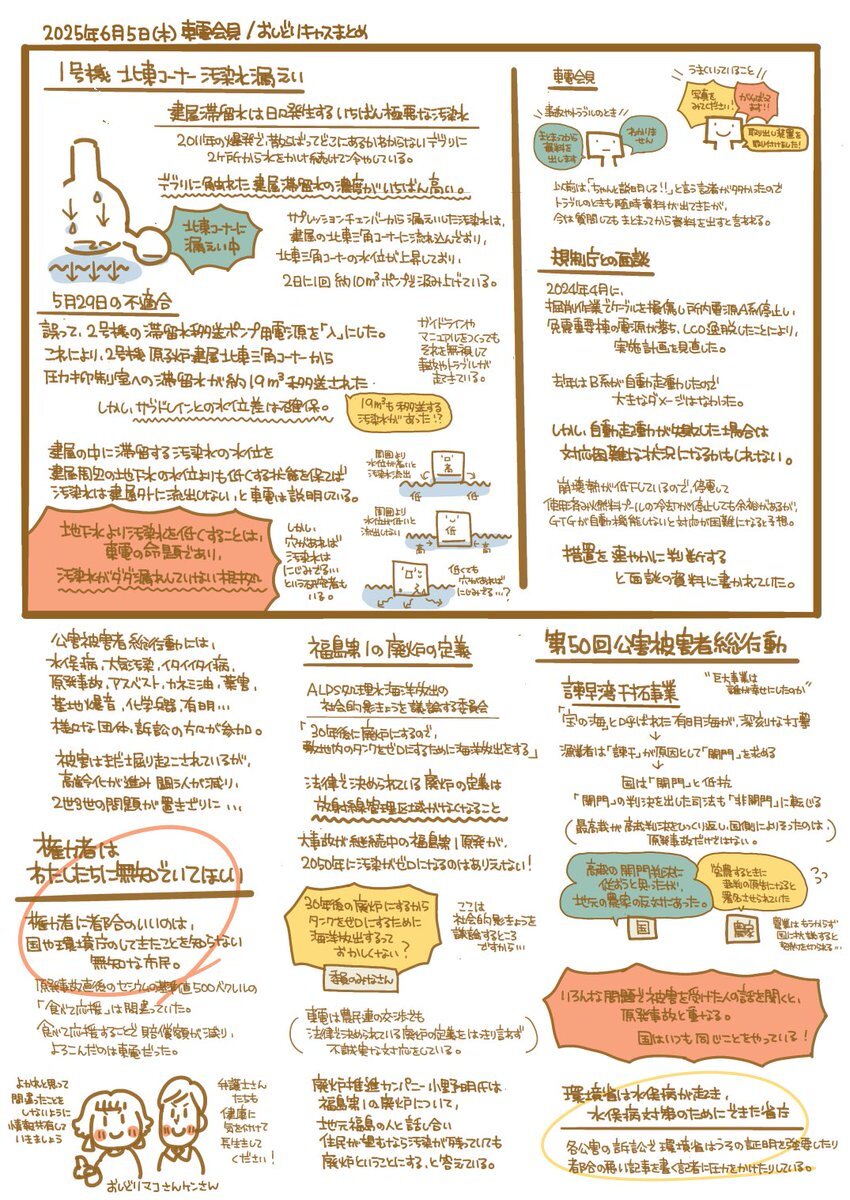 2025年6月5日(木) 東電会見/おしどりキャスまとめ
1号機 北東コーナー汚染水漏えい
建屋滞留水は日々発生するいちばん極悪な汚染水
2011年の爆発で散らばってどこにあるかわからないデブリに
2ヶ所から水をかけ続けて冷やしている。
デブリに触れた建屋滞留水の濃度がいちばん高い。
北東コーナーに
漏えい中
サプレッションチェンバーから漏えいした汚染水は、
建屋の北東三角コーナーに流れ込んでおり、
北東三角コーナーの水位が上昇しており、
2日に1回 約10m³ポンプで汲み上げている。
5月29日の不適合
誤って、2号機の滞留水移送ポンプ用電源を「入」にした。
これにより、2号機原子炉建屋北東三角コーナーから
圧力抑制室への滞留水が約19m³移送された
しかし、サブドレインとの水位差は確保。
ガイドラインや
マニュアルをつくっても
それを無視して
事故やトラブルが
起きている。
19m³も移送する
汚染水があった!?
建屋の中に滞留する汚染水の水位を
建屋周辺の地下水の水位よりも低くする状態を保てば
汚染水は建屋外に流出しない、と東電は説明している。
周囲より
水位が高いと
汚染水流出
高
低
低
周囲より
水位が低いと
流出しない
低
高
高
地下水より汚染水を低くすることは、
東電の命題であり、
汚染水がダダ漏れしていない根拠。
しかし、
穴があれば
汚染水は
にじみでる…
という研究者も
いる。
低くても
穴があれば
にじみでる…?
東電会見
事故やトラブルのとき
まとまってから
資料を
出します
わかりま
せん
うまくいっていること
写真を
みてください!
がんばって
ます!!
取り出し装置を
取り付けました!
以前は、「ちゃんと説明しろ!!」と言う記者が多かったので
トラブルのときも随時資料が出てきたが、
今は質問してもまとまってから資料を出すと言われる。
規制庁との面談
2024年4月に、
掘削作業でケーブルを損傷し所内電源A系停止し、
免震重要棟の電源が落ち、LCO逸脱したことにより、
実施計画を見直した。
去年はB系が自動起動したので
大きなダメージはなかった。
しかし、自動起動が失敗した場合は
対応困難な状況になるかもしれない。
崩壊熱が低下しているので、停電して
使用済み燃料プールの冷却が停止しても余裕があるが、
GTGが自動機能しないと対応が困難になると予想。
措置を速やかに判断する
と面談の資料に書かれていた。
公害被害者総行動には、
水俣病、大気汚染、イタイイタイ病、
原発事故、アスベスト、カネミ油、薬害、
基地爆音、化学兵器、有明…
様々な団体、訴訟の方々が参加。
被害はまだ掘り起こされているが、
高齢化が進み闘う人が減り、
2世3世の問題が置きざりに…
権力者は
わたしたちに無知でいてほしい
権力者に都合のいいのは、
国や環境庁のしてきたことを知らない
無知な市民。
原発事故直後のセシウムの基準値500ベクレルの
「食べて応援」は間違っていた。
食べて応援することで賠償額が減り、
よろこんだのは東電だった。
よかれと思って
間違ったことを
しないように
情報共有して
いきましょう
弁護士さん
たちも
健康に
気を付けて
長生きして
ください!
おしどりマコさんケンさん
福島第1の廃炉の定義
ALPS処理水海洋放出の
社会的影きょうを議論する委員会
「30年後に廃炉にするので、
敷地内のタンクをゼロにするために海洋放出をする」
法律で決められている廃炉の定義は
放射線管理区域がなくなること
大事故が継続中の福島第1原発が、
2050年に汚染がゼロになるのはありえない!
30年後の廃炉にするから
タンクをゼロにするために
海洋放出するって
おかしくない?
委員のみなさん
ここは
社会的影きょうを
議論するところ
ですから…
東電は農民連の交渉でも
法律で決められている廃炉の定義をはっきり言わず
不誠実な対応をしている。
廃炉推進カンパニー小野明氏は
福島第1の廃炉について、
地元福島の人と話し合い
住民が望むなら汚染が残っていても
廃炉ということにする、と答えている。
第50回公害被害者総行動
諫早湾干拓事業
"巨大事業は
誰が幸せにしたのか"
「宝の海」と呼ばれた有明海が、深刻な打撃
↓
漁業者は「諫干」が原因として「開門」を求める
↓
国は「開門」と抵抗
「開門」の判決を出した司法も「非開門」に転じる
(最高裁が高裁判決をひっくり返し、国側によりそったのは、
原発事故だけではない。)
高裁の開門判決に
従おうと思ったが、
地元の農家の反対にあった。
国
営農するときに
裁判の原告になると
署名させられていた
農家
農業はもうからず
国に抗議すると
契約を切られる…
いろんな問題で被害を受けた人の話を聞くと、
原発事故と重なる。
国はいつも同じことをやっている!
環境省は水俣病が起き、
水俣病対策のためにできた省庁
各公害の訴訟で環境省はうその証明を強要したり
都合の悪い記事を書く記者に圧力をかけたりしている。